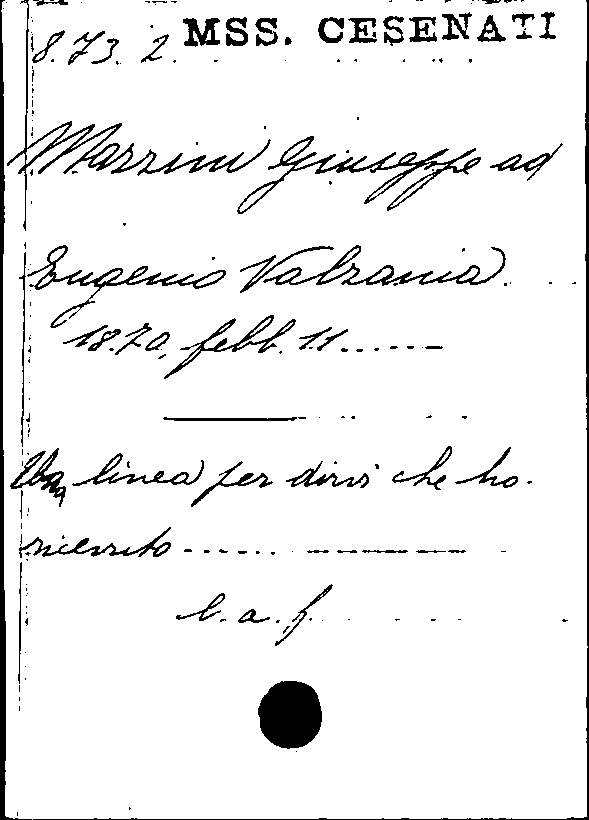 8.73.2 MSS. CESENATI
Mazzini Giuseppe ad
Eugenio Valzania
1870, febb. 11......
Una linea per dirvi che ho
ricevuto ......
l.a.f.